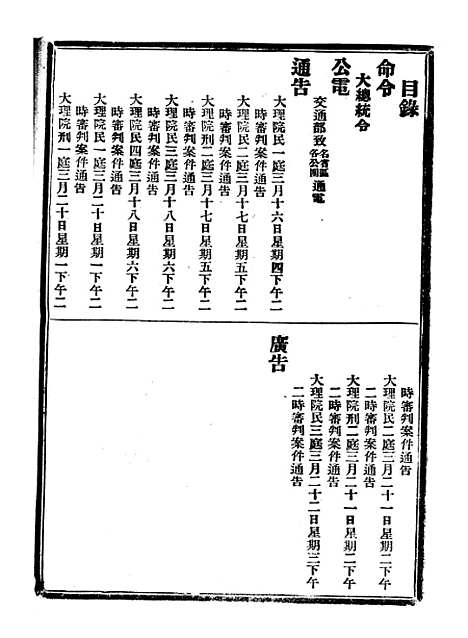 目錄
命令
大總統令
公電
交通部致各省區各公團通電
通告
大理院民一庭三月十六日星期四下午二
時審判案件通告
大理院民二庭三月十七日星期五下午二
時審判案件通告
大理院刑二庭三月十七日星期五下午二
時審判案件通告
大理院民三庭三月十八日星期六下午二
時審判案件通告
大理院民四庭三月十八日星期六下午二
時審判案件通告
大理院民一庭三月二十日星期一下午二
時審判案件通告
大理院刑一庭三月二十日星期一下午二
時審判案件通告
大理院民二庭三月二十一日星期二下午
二時審判案件通告
大理院刑二庭三月二十一日星期二下午
二時審判案件通告
大理院民三庭三月二十二日星期三下午
二時審判案件通告
廣告